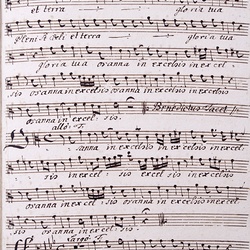 et terra gloria tua
Pleni sunt Coeli et terra gloria tua
gloria tua osanna in excelsis in excel
sis osanna in excelsis osanna in excelsis
osanna in excel: sis. Benedictus Tacet
allo: T.
sanna in excelsis in excelsis in excelsis
sis in excel: sis in excel: sis in excel:
sis osanna in excel: sis osanna in excel: sis
osanna in excel: sis.
Largo T.